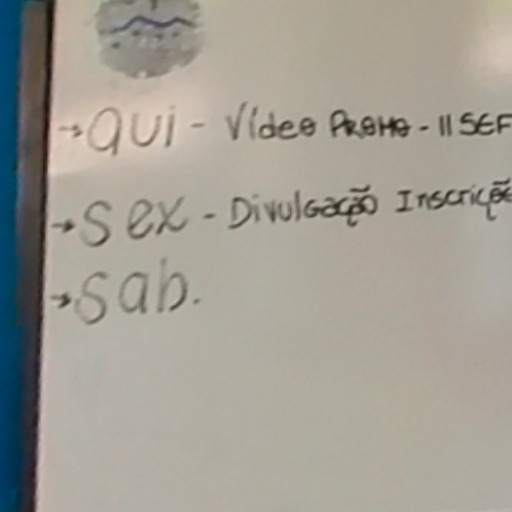 → qui - Vídeo PROMO - II SEF
→ sex - Divulgação Inscriçõe
→ sab.